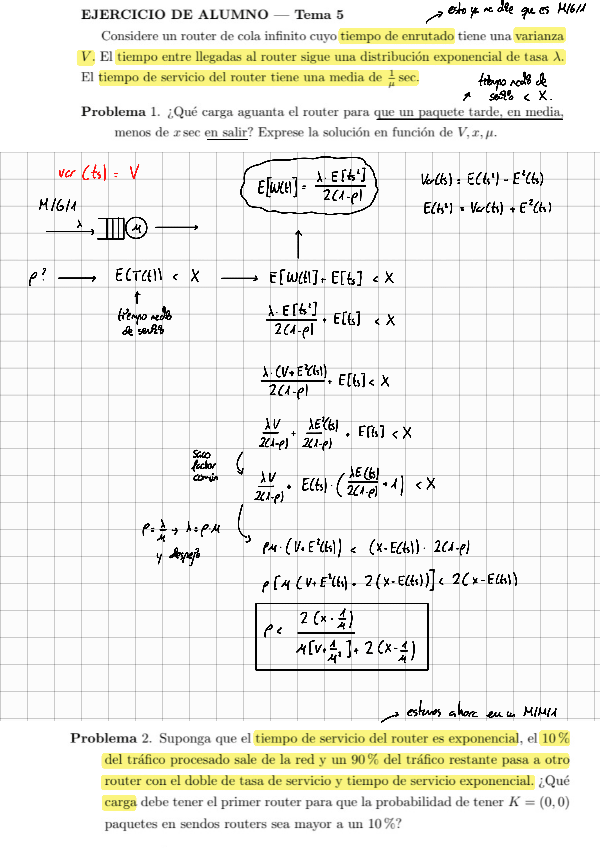 EJERCICIO DE ALUMNO — Tema 5
→ esto ya me dice que es M/G/1
Considere un router de cola infinito cuyo tiempo de enrutado tiene una varianza
V. El tiempo entre llegadas al router sigue una distribución exponencial de tasa λ.
El tiempo de servicio del router tiene una media de 1/μ sec.
tiempo medio de
servicio < X.
Problema 1. ¿Qué carga aguanta el router para que un paquete tarde, en media,
menos de x sec en salir? Exprese la solución en función de V, x, μ.
var (ts) = V
E[W(t)] = λ · E[ts²] / 2(1-ρ)
Var(ts) = E(ts²) - E²(ts)
E(ts²) = Var(ts) + E²(ts)
M/G/1
λ
μ
ρ? → E(T(t)) < X → E[W(t)] + E[ts] < X
tiempo medio
de servicio
λ · E[ts²] / 2(1-ρ) + E[ts] < X
λ · (V + E²(ts)) / 2(1-ρ) + E[ts] < X
λV / 2(1-ρ) + λE²(ts) / 2(1-ρ) + E[ts] < X
saco
factor
común
λV / 2(1-ρ) + E(ts) · ( λE(ts) / 2(1-ρ) + 1 ) < X
ρ = λ/μ → λ = ρ·μ
y despejo
ρμ · (V + E²(ts)) < (x - E(ts)) · 2(1-ρ)
ρ[μ (V + E²(ts) + 2(x - E(ts))] < 2(x - E(ts))
ρ < 2 (x - 1/μ) / μ[V + 1/μ²] + 2(x - 1/μ)
→ estamos ahora en un M/M/1
Problema 2. Suponga que el tiempo de servicio del router es exponencial, el 10 %
del tráfico procesado sale de la red y un 90 % del tráfico restante pasa a otro
router con el doble de tasa de servicio y tiempo de servicio exponencial. ¿Qué
carga debe tener el primer router para que la probabilidad de tener K = (0, 0)
paquetes en sendos routers sea mayor a un 10 %?